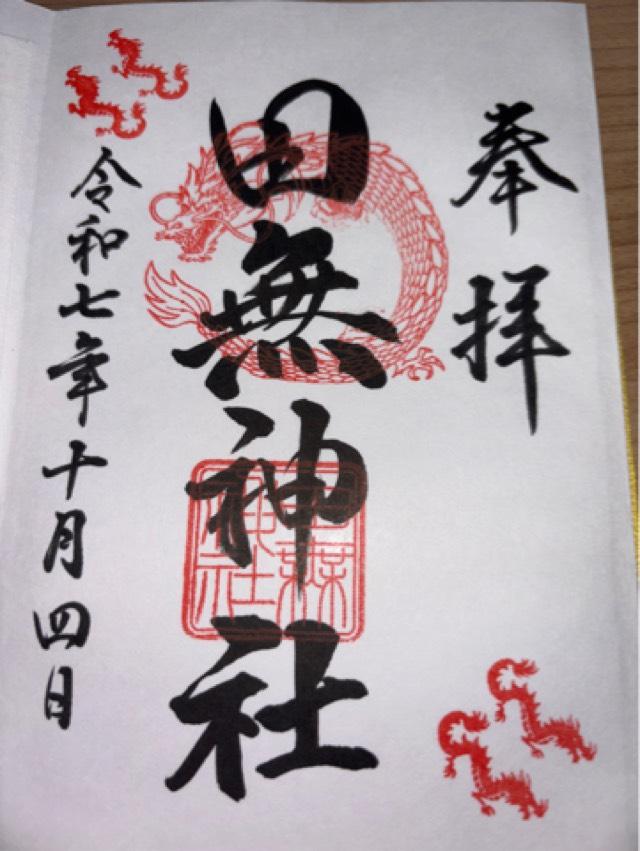 奉拝
田無神社
令和七年十月四日
田無神社